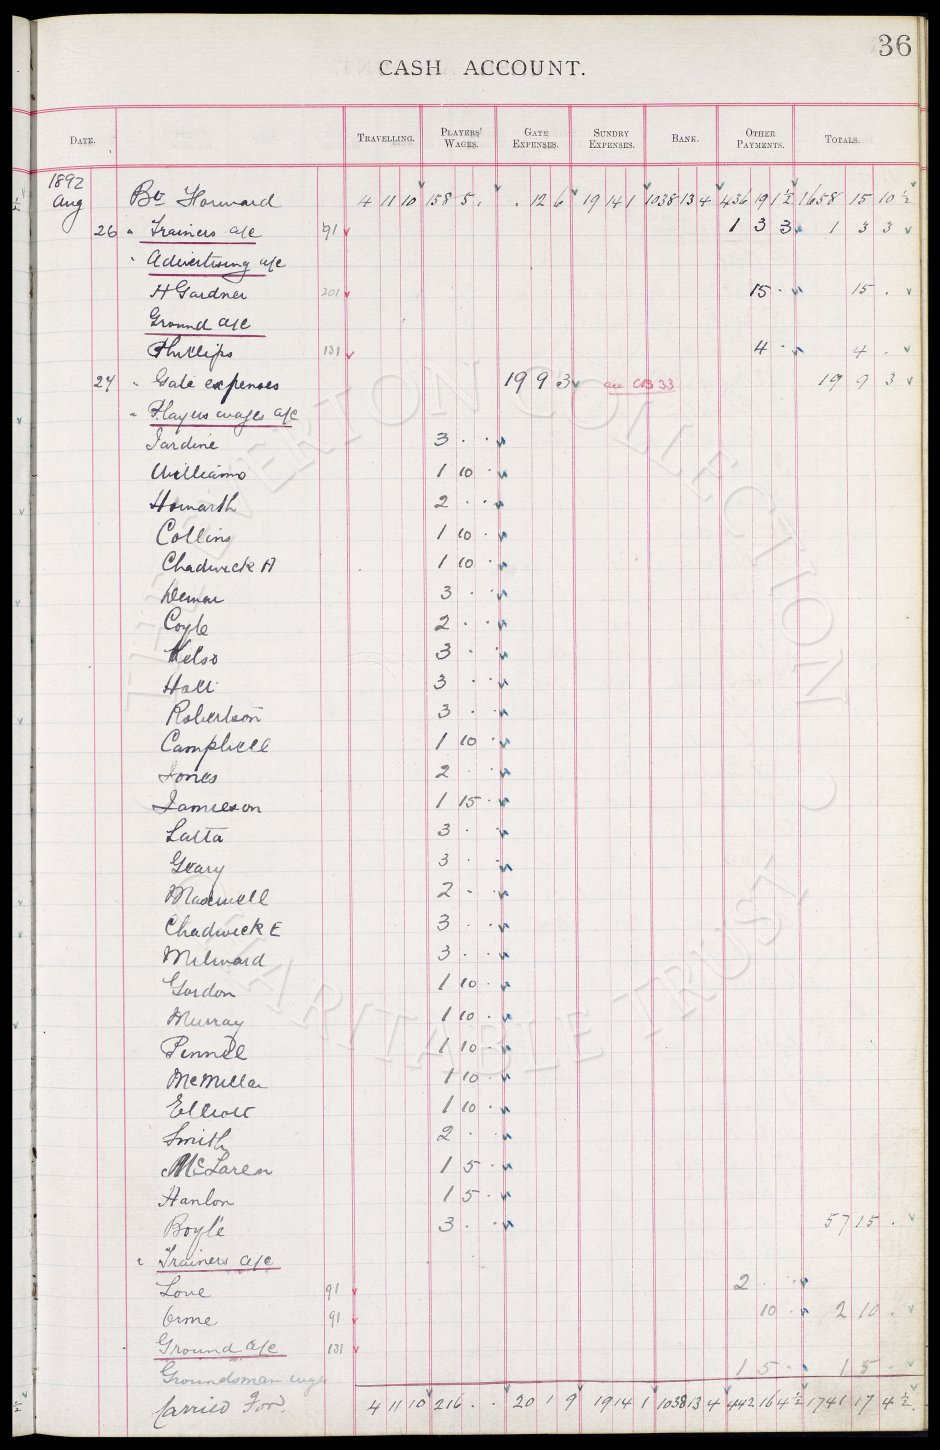 36
CASH ACCOUNT.
DATE. TRAVELLING. PLAYERS' WAGES. GATE EXPENSES. SUNDRY EXPENSES. BANK. OTHER PAYMENTS. TOTALS.
1892
Aug Bt Forward 4 11 10 158 5 . . 12 6 19 14 1 1038 13 4 436 19 1½ 1658 15 10½
26 " Trainers a/c 91 1 3 3 1 3 3
" Advertising a/c
H Gardner 201 15 . 15 .
Ground a/c
Phillips 131 4 . 4 .
27 " Gate expenses 19 9 3 see CB 33 19 9 3
" Players wages a/c
Jardine 3 . .
Williams 1 10 .
Howarth 2 . .
Collins 1 10 .
Chadwick A 1 10 .
Dewar 3 . .
Coyle 2 . .
Kelso 3 . .
Holt 3 . .
Robertson 3 . .
Campbell 1 10 .
Jones 2 . .
Jamieson 1 15 .
Latta 3 . .
Geary 3 . .
Maxwell 2 . .
Chadwick E 3 . .
Milward 3 . .
Gordon 1 10 .
Murray 1 10 .
Pinnell 1 10 .
McMillan 1 10 .
Elliott 1 10 .
Smith 2 . .
McLaren 1 5 .
Hanlon 1 5 .
Boyle 3 . . 57 15 .
" Trainers a/c
Love 91 2 . .
Orme 91 10 . 2 10 .
Ground a/c 131
Groundsman wages 1 5 . 1 5 .
Carried Ford. 4 11 10 216 . . 20 1 9 19 14 1 1038 13 4 442 16 4½ 1741 17 4½
THE EVERTON COLLECTION
CHARITABLE TRUST